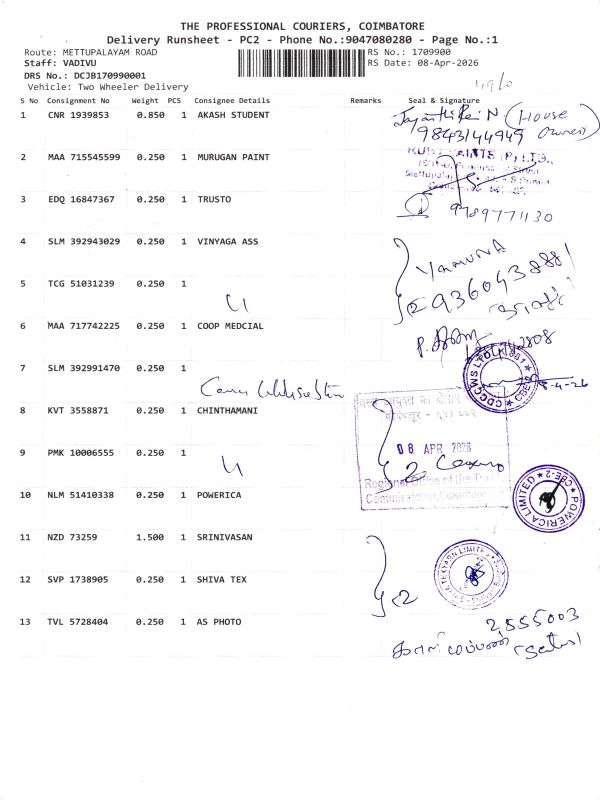 THE PROFESSIONAL COURIERS, COIMBATORE
Delivery Runsheet - PC2 - Phone No.:9047080280 - Page No.:1
Route: METTUPALAYAM ROAD RS No.: 1709900
Staff: VADIVU RS Date: 08-Apr-2026
DRS No.: DCJB170990001
Vehicle: Two Wheeler Delivery
S No Consignment No Weight PCS Consignee Details Remarks Seal & Signature
1 CNR 1939853 0.850 1 AKASH STUDENT
(House
9843144949 owner)
2 MAA 715545599 0.250 1 MURUGAN PAINT
3 EDQ 16847367 0.250 1 TRUSTO
9789771130
4 SLM 392943029 0.250 1 VINYAGA ASS
YAMUNA
9360438881
5 TCG 51031239 0.250 1
6 MAA 717742225 0.250 1 COOP MEDCIAL
7 SLM 392991470 0.250 1
8 KVT 3558871 0.250 1 CHINTHAMANI
08 APR 2026
9 PMK 10006555 0.250 1
2
Regional Office of the
10 NLM 51410338 0.250 1 POWERICA
POWERICA LIMITED ★ CBE-2 ★
11 NZD 73259 1.500 1 SRINIVASAN
12 SVP 1738905 0.250 1 SHIVA TEX
2
13 TVL 5728404 0.250 1 AS PHOTO
2555003